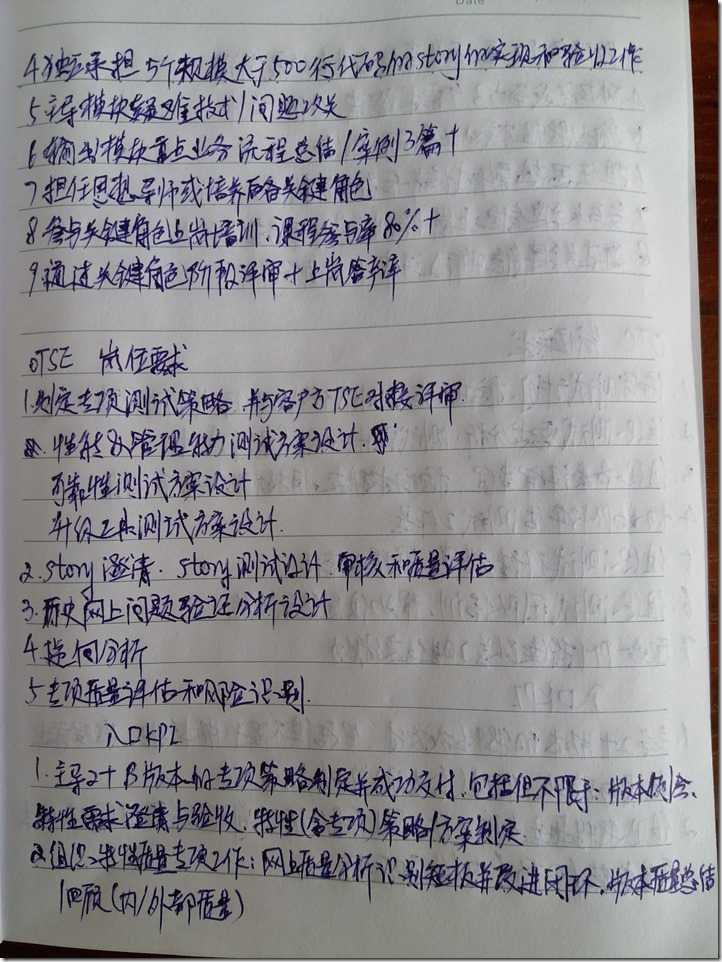 Date
4 独立承担 5个规模大于500行代码的story的实现和验收工作
5 主导模块疑难技术/问题攻关
6 输出模块重点业务流程总结/案例3篇+
7 担任思想导师或培养后备关键角色
8 参与关键角色上岗培训、课程参与率80%+
9 通过关键角色阶段评审+上岗答辩
TSE 岗位要求
1.制定专项测试策略 并与客户方TSE对接评审
性能及管理能力测试方案设计.
可靠性测试方案设计
升级工具测试方案设计.
2.story澄清. story测试设计.审核和质量评估
3.历史网上问题验证分析设计
4.提问分析
5.专项质量评估和风险识别.
入口KPI
1.主导2+B版本的专项策略制定并成功交付.包括但不限于:版本例会、
特性需求澄清与验收.特性(含专项)策略/方案制定
2.组织特性质量专项工作:网上质量分析识别短板并改进闭环.版本质量总结
/回顾(内/外部质量)